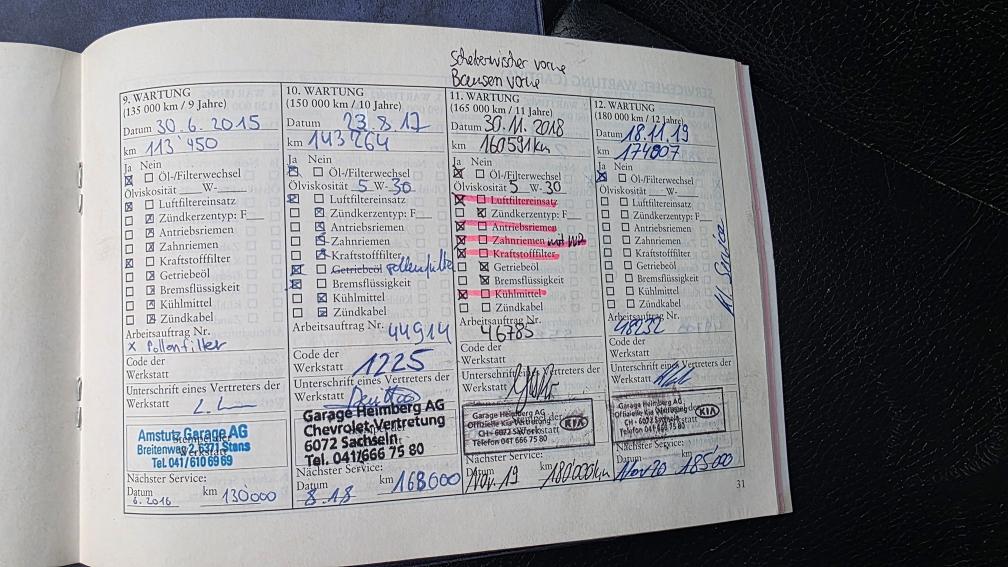 Scheibenwischer vorne
Bremsen vorne
9. WARTUNG
(135 000 km / 9 Jahre)
Datum 30.6.2015
km 113'450
Ja Nein
Öl-/Filterwechsel
Ölviskosität W-
Luftfiltereinsatz
Zündkerzentyp: F
Antriebsriemen
Zahnriemen
Kraftstofffilter
Getriebeöl
Bremsflüssigkeit
Kühlmittel
Zündkabel
Arbeitsauftrag Nr.
x Pollenfilter
Code der
Werkstatt
Unterschrift eines Vertreters der
Werkstatt
Amstutz Garage AG
Breitenweg 2, 6371 Stans
Tel. 041/610 69 69
Nächster Service:
Datum km
6.2016 130'000
10. WARTUNG
(150 000 km / 10 Jahre)
Datum 23.8.17
km 143'264
Ja Nein
Öl-/Filterwechsel
Ölviskosität 5 W-30
Luftfiltereinsatz
Zündkerzentyp: F
Antriebsriemen
Zahnriemen
Kraftstofffilter
Getriebeöl Pollenfilter
Bremsflüssigkeit
Kühlmittel
Zündkabel
Arbeitsauftrag Nr.
44914
Code der
Werkstatt 1225
Unterschrift eines Vertreters der
Werkstatt
Garage Heimberg AG
Chevrolet-Vertretung
6072 Sachseln
Tel. 041/666 75 80
Nächster Service:
Datum km
8.18 168000
11. WARTUNG
(165 000 km / 11 Jahre)
Datum 30.11.2018
km 160591km
Ja Nein
Öl-/Filterwechsel
Ölviskosität 5 W-30
Luftfiltereinsatz
Zündkerzentyp: F
Antriebsriemen
Zahnriemen mit
Kraftstofffilter
Getriebeöl
Bremsflüssigkeit
Kühlmittel
Zündkabel
Arbeitsauftrag Nr.
46785
Code der
Werkstatt
Unterschrift eines Vertreters der
Werkstatt
Garage Heimberg AG
Offizielle Kia Vertretung
CH - 6072 Sachseln
Telefon 041 666 75 80
KIA
Nächster Service:
Datum km
Nov. 19 180'000km
12. WARTUNG
(180 000 km / 12 Jahre)
Datum 18.11.19
km 174807
Ja Nein
Öl-/Filterwechsel
Ölviskosität W-
Luftfiltereinsatz
Zündkerzentyp: F
Antriebsriemen
Zahnriemen
Kraftstofffilter
Getriebeöl
Bremsflüssigkeit
Kühlmittel
Zündkabel
Kl. Service
Arbeitsauftrag Nr.
48232
Code der
Werkstatt
Unterschrift eines Vertreters der
Werkstatt
Garage Heimberg AG
Offizielle Kia Vertretung
CH - 6072 Sachseln
Telefon 041 666 75 80
KIA
Nächster Service:
Datum km
Nov 20 185000
31